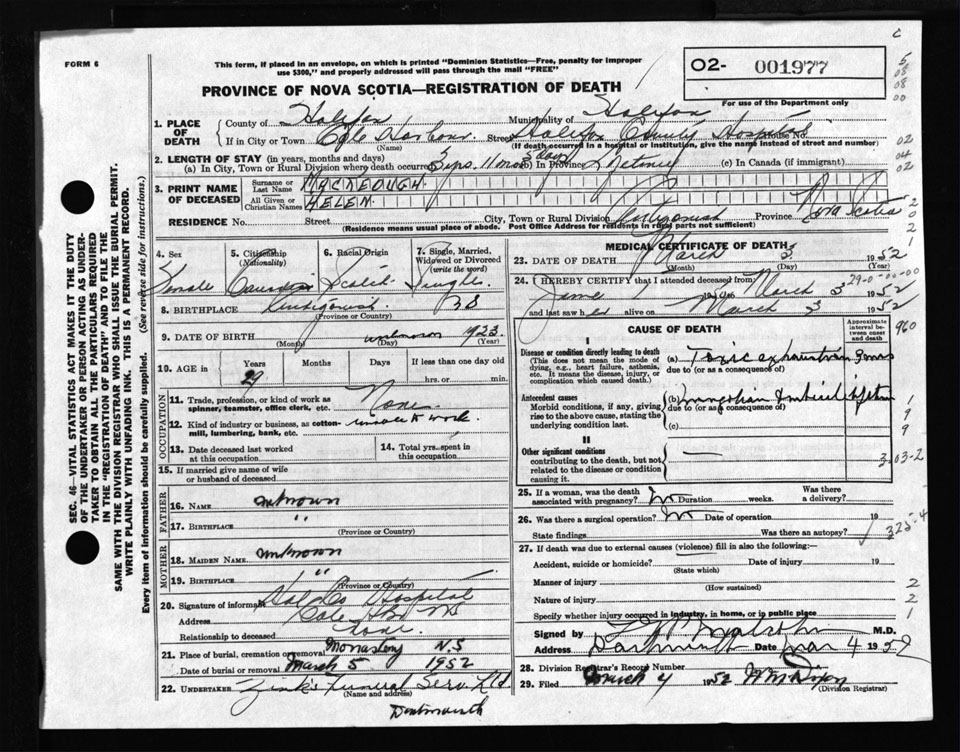 C
FORM 6
This form, if placed in an envelope, on which is printed "Dominion Statistics—Free, penalty for improper
use $300," and properly addressed will pass through the mail "FREE"
O2- 001977
For use of the Department only
PROVINCE OF NOVA SCOTIA—REGISTRATION OF DEATH
1. PLACE OF DEATH
County of Halifax Municipality of Halifax
If in City or Town Cole Harbour Street Halifax County Hospital House No.
(Name) (If death occurred in a hospital or institution, give the name instead of street and number)
2. LENGTH OF STAY (in years, months and days)
(a) In City, Town or Rural Division where death occurred 3 yrs. 11 mos 5 days (b) In Province (c) In Canada (if immigrant)
3. PRINT NAME OF DECEASED
Surname or Last Name MACKEOUGH
All Given or Christian Names HELEN
RESIDENCE No. Street City, Town or Rural Division Antigonish Province Nova Scotia
(Residence means usual place of abode. Post Office Address for residents in rural parts not sufficient)
4. Sex Female
5. Citizenship (Nationality) Canadian
6. Racial Origin Scotch
7. Single, Married, Widowed or Divorced (write the word) Single
8. BIRTHPLACE Antigonish NS
(Province or Country)
9. DATE OF BIRTH unknown 1923
(Month) (Day) (Year)
10. AGE in Years 29 Months Days If less than one day old
hrs. or min.
OCCUPATION
11. Trade, profession, or kind of work as spinner, teamster, office clerk, etc. None
12. Kind of industry or business, as cotton-mill, lumbering, bank, etc. unable to work
13. Date deceased last worked at this occupation
14. Total yrs. spent in this occupation
15. If married give name of wife or husband of deceased
FATHER
16. NAME unknown
17. BIRTHPLACE "
(Province or Country)
MOTHER
18. MAIDEN NAME unknown
19. BIRTHPLACE "
(Province or Country)
20. Signature of informant Hal Co Hospital
Address Cole Hbr NS
Relationship to deceased none
21. Place of burial, cremation or removal Monastery N.S
Date of burial or removal March 5 1952
22. UNDERTAKER Zink's Funeral Serv. Ltd
(Name and address)
Dartmouth
MEDICAL CERTIFICATE OF DEATH
23. DATE OF DEATH March 3 1952
(Month) (Day) (Year)
24. I HEREBY CERTIFY that I attended deceased from
to March 3 1952
and last saw h er alive on March 3 1952
29-0-00-00
CAUSE OF DEATH
Approximate interval between onset and death
I
Disease or condition directly leading to death
(This does not mean the mode of dying, e.g., heart failure, asthenia, etc. It means the disease, injury, or complication which caused death.
(a) Toxic exhaustion 3 mos
due to (or as a consequence of)
Antecedent causes
Morbid conditions, if any, giving rise to the above cause, stating the underlying condition last.
(b) mongolian imbecile
due to (or as a consequence of)
(c)
II
Other significant conditions
contributing to the death, but not related to the disease or condition causing it.
25. If a woman, was the death associated with pregnancy? No Duration weeks. Was there a delivery?
26. Was there a surgical operation? No Date of operation 19
State findings Was there an autopsy?
325-4
27. If death was due to external causes (violence) fill in also the following:—
Accident, suicide or homicide? Date of injury 19
(State which)
Manner of injury
(How sustained)
Nature of injury
Specify whether injury occurred in industry, in home, or in public place
Signed by M.D.
Address Dartmouth Date Mar 4 1952
28. Division Registrar's Record Number
29. Filed March 4 1952
(Division Registrar)
SEC. 46—VITAL STATISTICS ACT MAKES IT THE DUTY
OF THE UNDERTAKER OR PERSON ACTING AS UNDER-
TAKER TO OBTAIN ALL THE PARTICULARS REQUIRED
IN THE "REGISTRATION OF DEATH" AND TO FILE THE
SAME WITH THE DIVISION REGISTRAR WHO SHALL ISSUE THE BURIAL PERMIT.
WRITE PLAINLY WITH UNFADING INK. THIS IS A PERMANENT RECORD.
Every item of information should be carefully supplied. (See reverse side for instructions.)